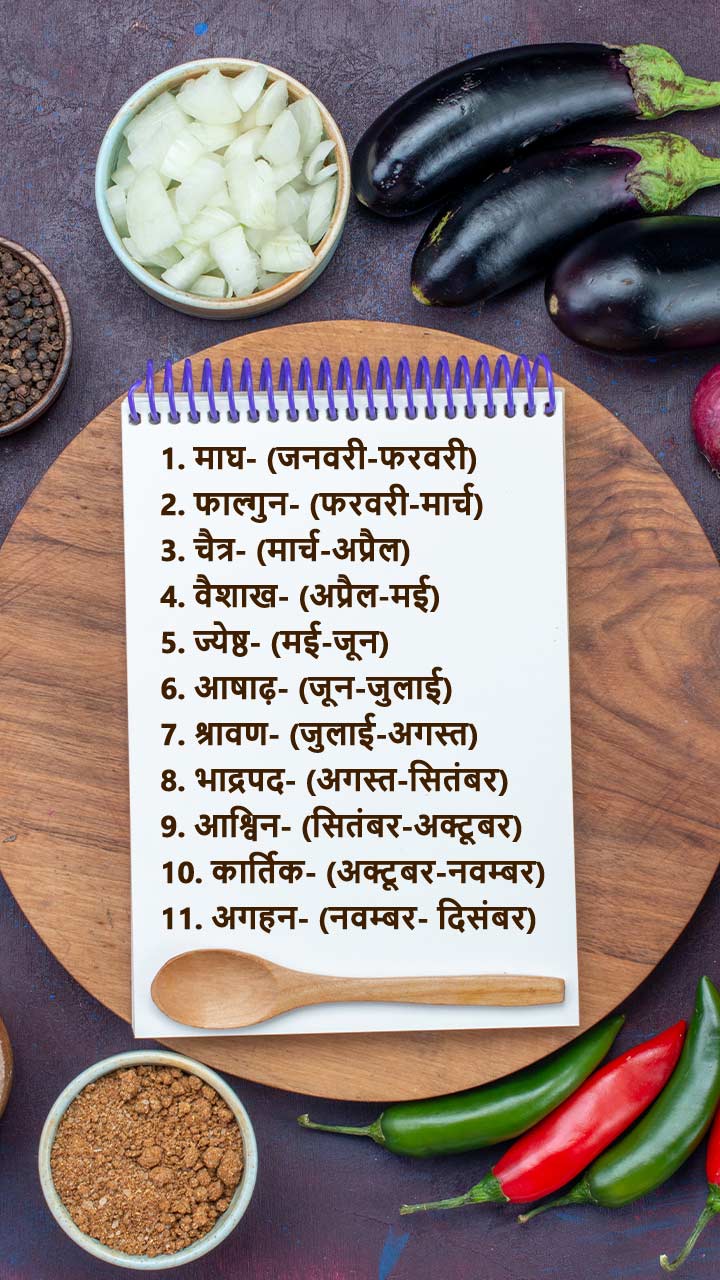 1. माघ- (जनवरी-फरवरी)
2. फाल्गुन- (फरवरी-मार्च)
3. चैत्र- (मार्च-अप्रैल)
4. वैशाख- (अप्रैल-मई)
5. ज्येष्ठ- (मई-जून)
6. आषाढ़- (जून-जुलाई)
7. श्रावण- (जुलाई-अगस्त)
8. भाद्रपद- (अगस्त-सितंबर)
9. आश्विन- (सितंबर-अक्टूबर)
10. कार्तिक- (अक्टूबर-नवम्बर)
11. अगहन- (नवम्बर- दिसंबर)